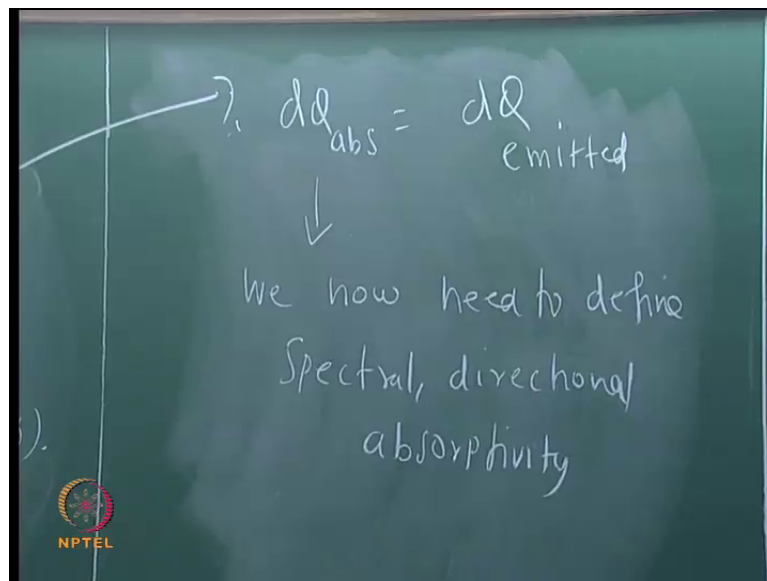 ?. dQabs = dQemitted
We now need to define
Spectral, directional
absorptivity
).
NPTEL